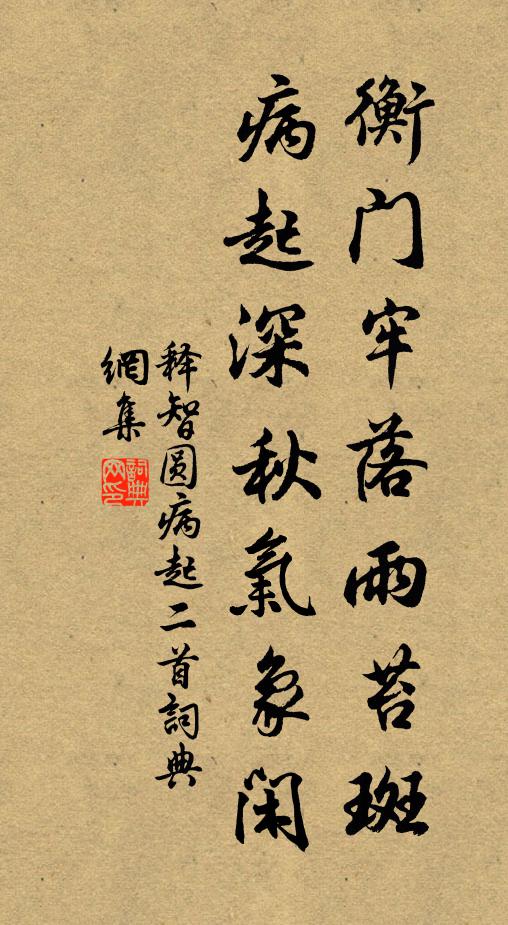 衡门牢落雨苔斑
病起深秋氣象閑
释智圆病起二首詞典
網集
詞典網印